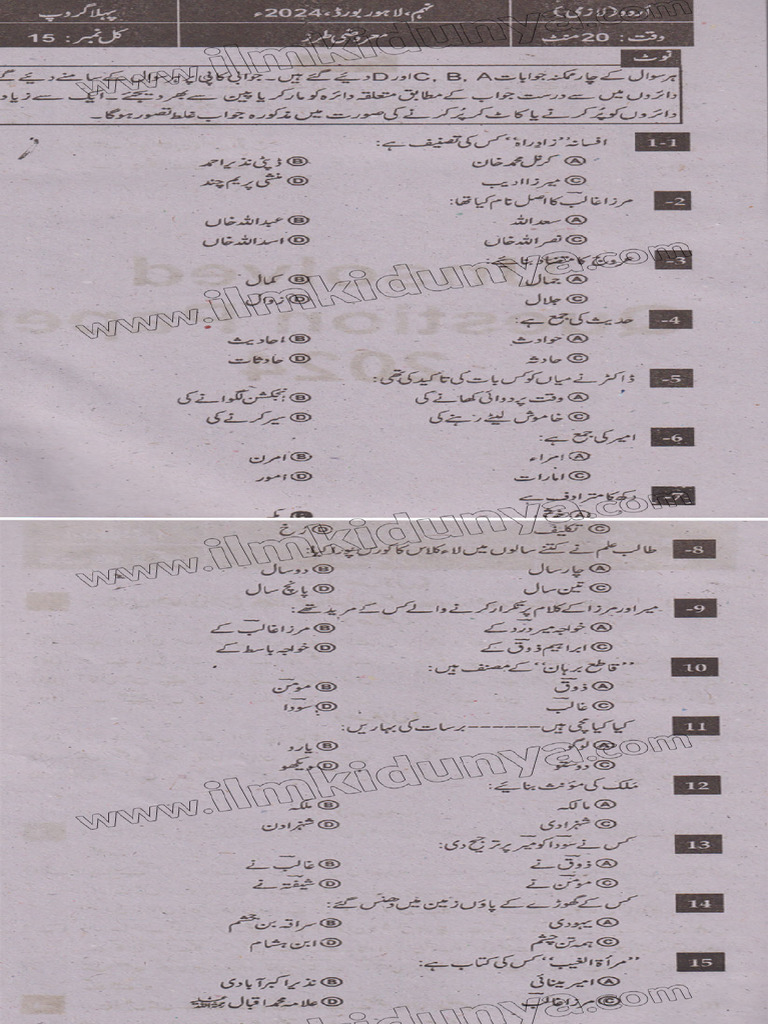 اُردو (لازمی) نہم، لاہور بورڈ، 2024ء پہلا گروپ
وقت: 20 منٹ معروضی طرز کل نمبر: 15
نوٹ
ہر سوال کے چار ممکنہ جوابات A، B، C اور D دیئے گئے ہیں۔ جوابی کاپی پر ہر سوال کے سامنے دیئے گئے
دائروں میں سے درست جواب کے مطابق متعلقہ دائرہ کو مارکر یا پین سے بھر دیجئے۔ ایک سے زیادہ
دائروں کو پُر کرنے یا کاٹ کر پُر کرنے کی صورت میں مذکورہ جواب غلط تصور ہوگا۔
1-1 افسانہ ”زادِ راہ“ کس کی تصنیف ہے:
A کرنل محمد خان B ڈپٹی نذیر احمد
C میرزا ادیب D منشی پریم چند
-2 مرزا غالبؔ کا اصل نام کیا تھا:
A سعد اللہ B عبداللہ خاں
C نصر اللہ خاں D اسد اللہ خاں
-3 عروج کا متضاد بتائیے:
A جمال B کمال
C جلال D زوال
-4 حدیث کی جمع ہے:
A حوادث B احادیث
C حادثہ D حادثات
-5 ڈاکٹر نے میاں کو کس بات کی تاکید کی تھی:
A وقت پر دوائی کھانے کی B انجکشن لگوانے کی
C خاموش لیٹے رہنے کی D سیر کرنے کی
-6 امیر کی جمع ہے:
A امراء B امرن
C امارات D امور
-7 دکھ کا مترادف ہے
A B
C تکلیف D
-8 طالب علم نے کتنے سالوں میں لاء کلاس کا کورس پورا کیا:
A چار سال B دو سال
C تین سال D پانچ سال
-9 میر اور مرزا کے کلام پر تکرار کرنے والے کس کے مرید تھے:
A خواجہ میر دردؔ کے B مرزا غالبؔ کے
C ابراہیم ذوقؔ کے D خواجہ باسط کے
10 ”قاطع برہان“ کے مصنف ہیں:
A ذوقؔ B مومنؔ
C غالبؔ D سوداؔ
11 کیا کیا مچی ہیں ------ برسات کی بہاریں:
A لوگو B یارو
C دوستو D دیکھو
12 مَلک کی مؤنث بنائیے:
A مالکہ B ملکہ
C شہزادی D شہزادن
13 کس نے سوداؔ کو میرؔ پر ترجیح دی:
A ذوقؔ نے B غالبؔ نے
C مومنؔ نے D شیفتہؔ نے
14 کس کے گھوڑے کے پاؤں زمین میں دھنس گئے:
A یہودی B سراقہ بن جعشم
C ہمہ تن چشم D ابن ہشام
15 ”مرأۃ الغیب“ کس کی کتاب ہے:
A امیر مینائی B نذیر اکبر آبادی
C مرزا غالبؔ D علامہ محمد اقبال
www.ilmkidunya.com
www.ilmkidunya.com
www.ilmkidunya.com
www.ilmkidunya.com